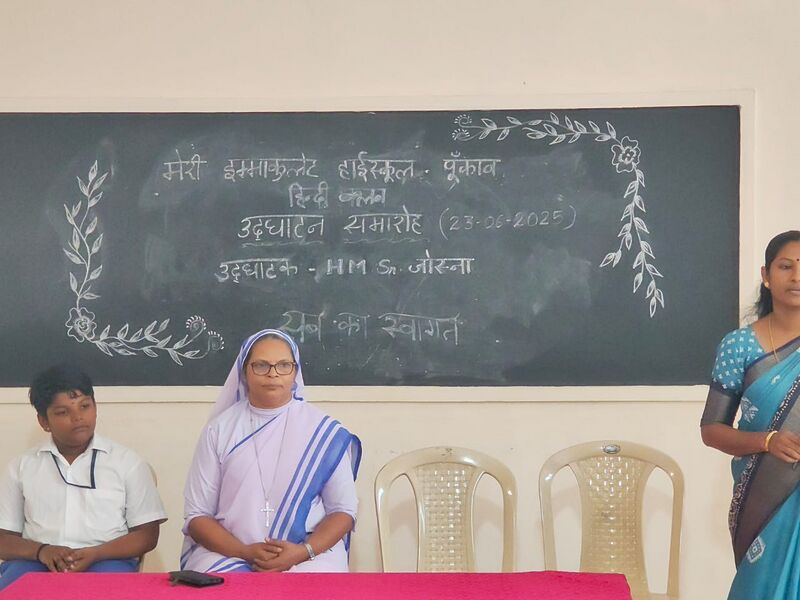 मेरी इम्माकुलेट हाईस्कूल. पूँकाव
हिन्दी क्लब
उद्घाटन समारोह (23-06-2025)
उद्घाटक - HM Sr. जोस्ना
सब का स्वागत